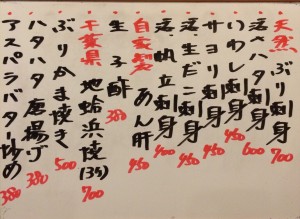 天然ぶり刺身 700
活ハタ刺身 600
いわし刺身 450
サヨリ刺身 450
活生だこ刺身 450
活帆立刺身 400
自家製 あん肝 450
生子酢 380
千葉県 地蛤浜焼(3ヶ) 700
ぶりかま焼き 500
ハタハタ唐揚げ 380
アスパラバター炒め 380